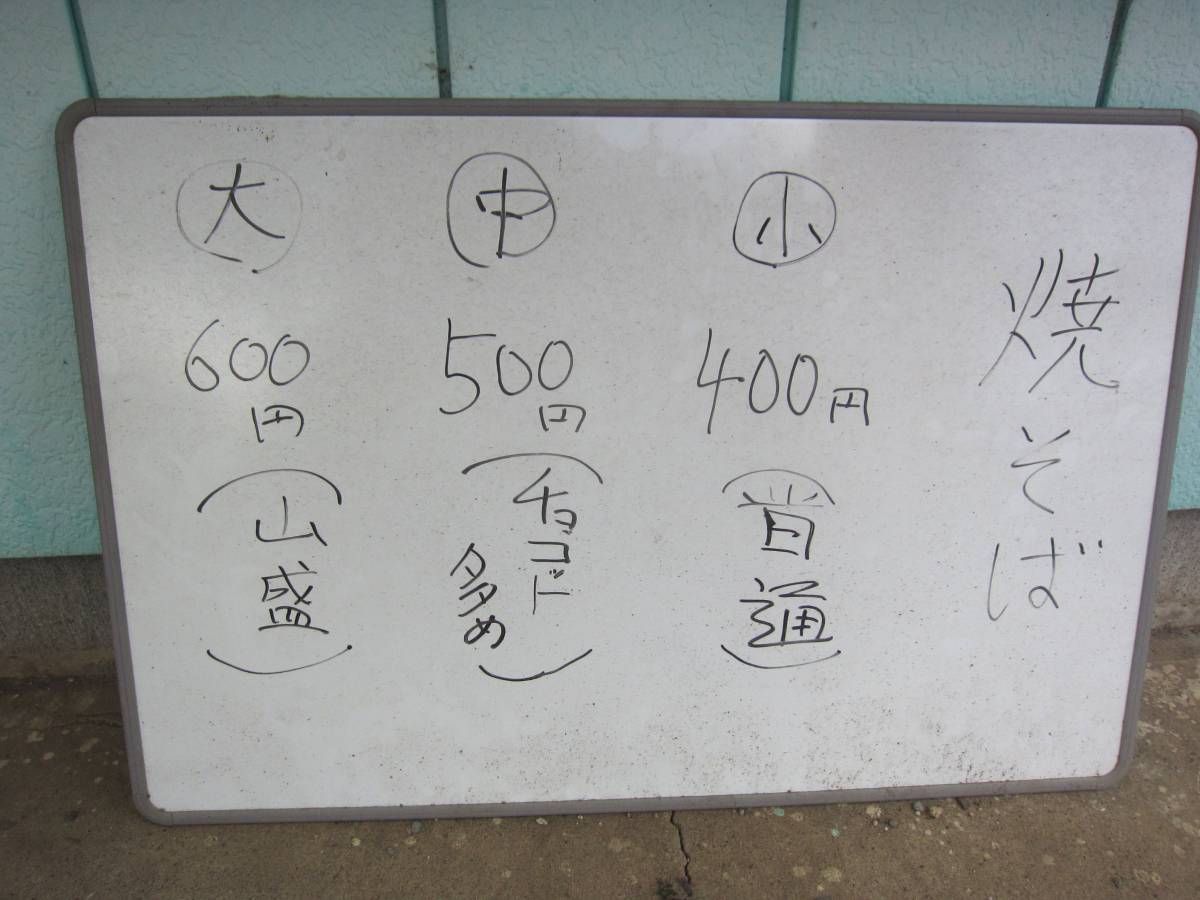 焼そば
小
400円
(普通)
中
500円
(チョコド
多め)
大
600円
(山盛)